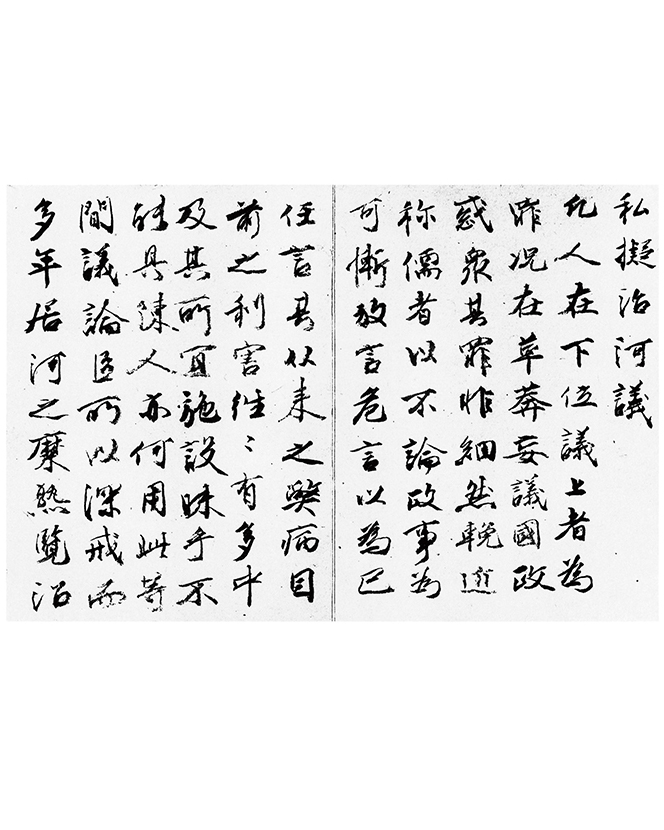 私擬治河議
凡人在下位議上者為
非况在草莽妄議國政
惑衆其罪非細然輓近
称儒者以不論政事為
可慚放言危言以為已
任言其从来之弊病目
前之利害往〻有多中
及其所宜施設昧乎不
能具陳人亦何用此等
間議論臣所以深戒而
多年居河之麋熟覽治